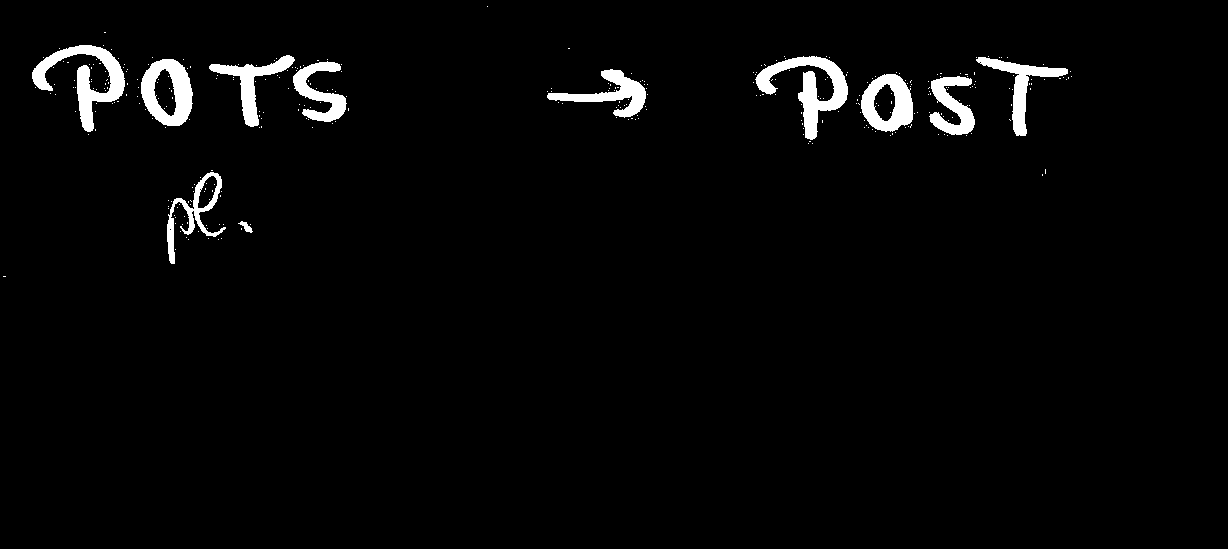 POTS → POST
pl.